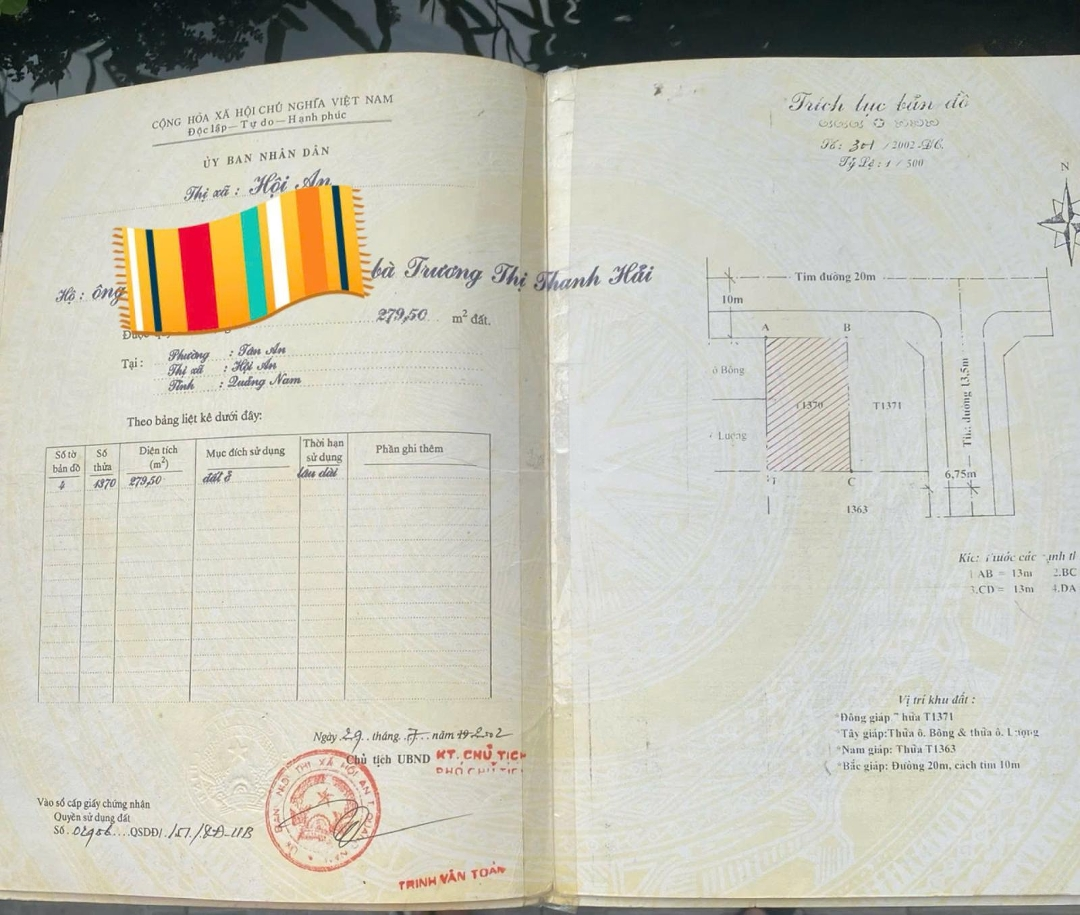 CỘNG HÒA XÃ HỘI CHỦ NGHĨA VIỆT NAM
Độc lập – Tự do – Hạnh phúc
ỦY BAN NHÂN DÂN
Thị xã : Hội An
Hộ : ông
bà Trương Thị Thanh Hải
279,50 m² đất.
Tại :
Phường : Tân An
Thị xã : Hội An
Tỉnh : Quảng Nam
Theo bảng liệt kê dưới đây:
Số tờ bản đồ Số thửa Diện tích (m²) Mục đích sử dụng Thời hạn sử dụng Phần ghi thêm
4 1370 279,50 đất ở lâu dài
Ngày 29 tháng 7 năm 2002
Chủ tịch UBND KT. CHỦ TỊCH
PHÓ CHỦ TỊCH
Vào sổ cấp giấy chứng nhận
Quyền sử dụng đất
Số 02956 QSDĐ/
TRỊNH VĂN TOẢN
Trích lục bản đồ
Số: 301 / 2002-ĐC.
Tỷ Lệ : 1 / 500
N
Tim đường 20m
10m
A B
ô Bông
T1370
T1371
Lượng
Tim đường 13,5m
6,75m
C
1363
Kích thước các cạnh th
1.AB = 13m 2.BC
3.CD = 13m 4.DA
Vị trí khu đất :
*Đông giáp Thửa T1371
*Tây giáp:Thửa ô. Bông & thửa ô. Lượng
*Nam giáp: Thửa T1363
*Bắc giáp: Đường 20m, cách tim 10m